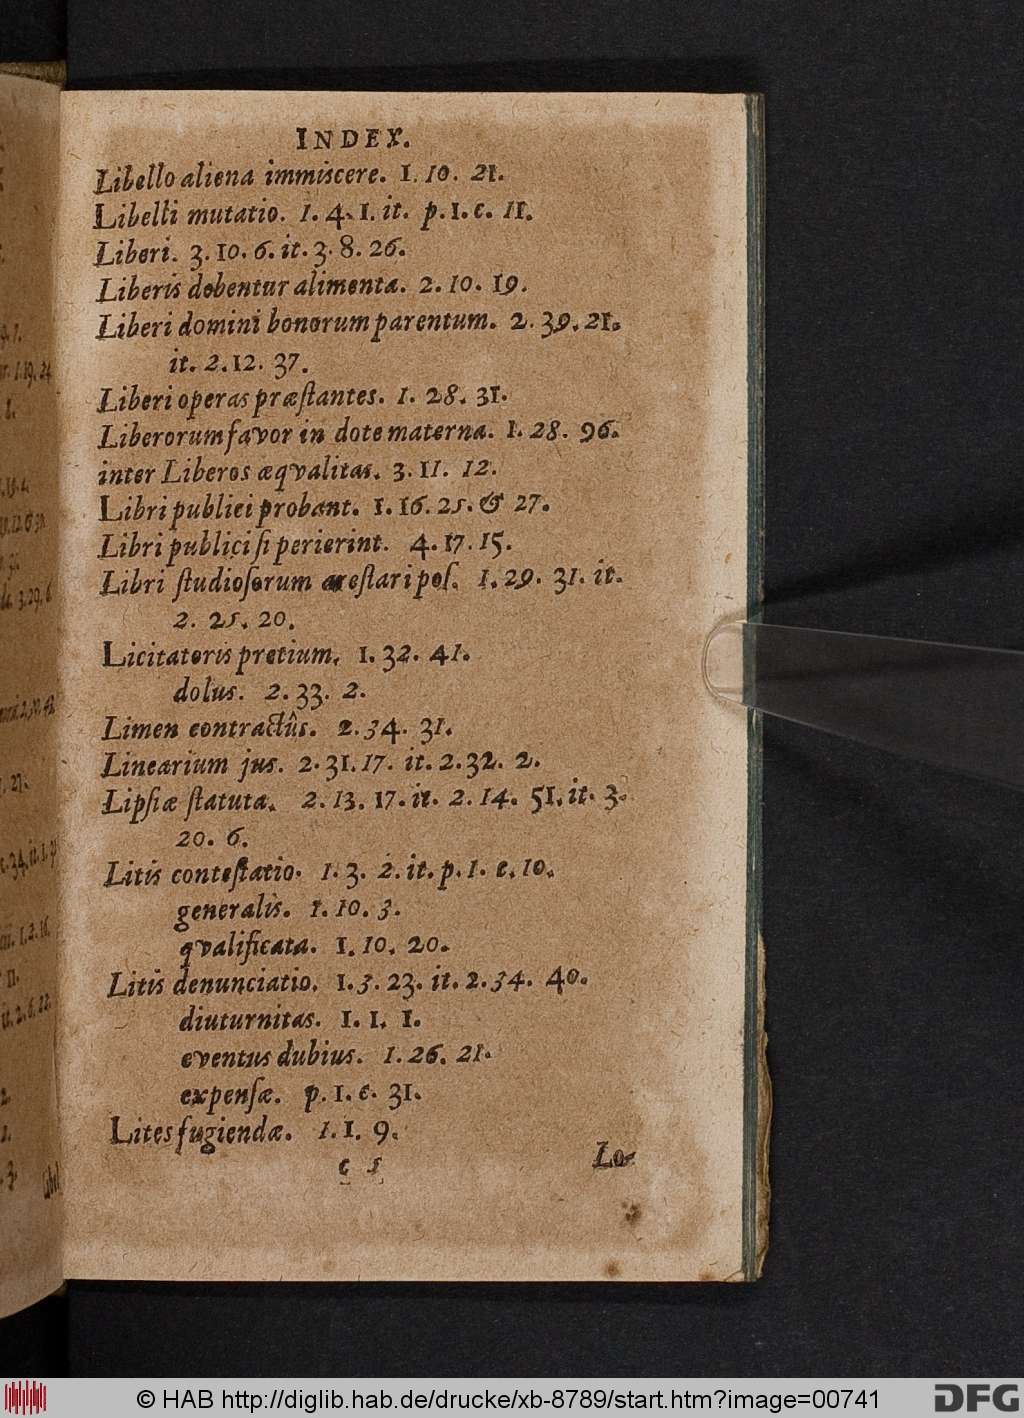 INDEX.
Libello aliena immiscere. 1. 10. 21.
Libelli mutatio. 1. 4. 1. it. p. 1. c. 11.
Liberi. 3. 10. 6. it. 3. 8. 26.
Liberis debentur alimenta. 2. 10. 19.
Liberi domini bonorum parentum. 2. 39. 21.
it. 2. 12. 37.
Liberi operas præſtantes. 1. 28. 31.
Liberorum favor in dote materna. 1. 28. 96.
inter Liberos æqvalitas. 3. 11. 12.
Libri publici probant. 1. 16. 25. & 27.
Libri publici ſi perierint. 4. 17. 15.
Libri ſtudioſorum areſtari poſ. 1. 29. 31. it.
2. 25. 20.
Licitatoris pretium. 1. 32. 41.
dolus. 2. 33. 2.
Limen contractûs. 2. 34. 31.
Linearium jus. 2. 31. 17. it. 2. 32. 2.
Lipſiæ ſtatuta. 2. 13. 17. it. 2. 14. 51. it. 3.
20. 6.
Litis conteſtatio. 1. 3. 2. it. p. 1. c. 10.
generalis. 1. 10. 3.
qvalificata. 1. 10. 20.
Litis denunciatio. 1. 3. 23. it. 2. 34. 40.
diuturnitas. 1. 1. 1.
eventus dubius. 1. 26. 21.
expenſæ. p. 1. c. 31.
Lites fugiendæ. 1. 1. 9.
c 5
Lo-
© HAB http://diglib.hab.de/drucke/xb-8789/start.htm?image=00741
DFG